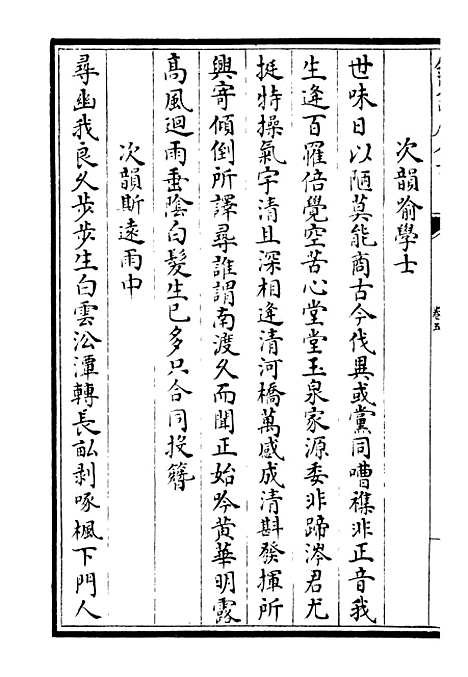 次韻喻學士
世味日以陋莫能商古今伐異或黨同嘈襍非正音我
生逢百罹倍覺空苦心堂堂玉泉家源委非蹄涔君尤
挺特操氣宇清且深相逢清河橋萬感成清斟發揮所
興寄傾倒所譯尋誰謂南渡久而聞正始吟黄華明露
髙風迴雨垂陰白髮生已多只合同投簪
次韻斯遠雨中
尋幽我良久步步生白雲㳂潭轉長畝剥啄楓下門人
卷五